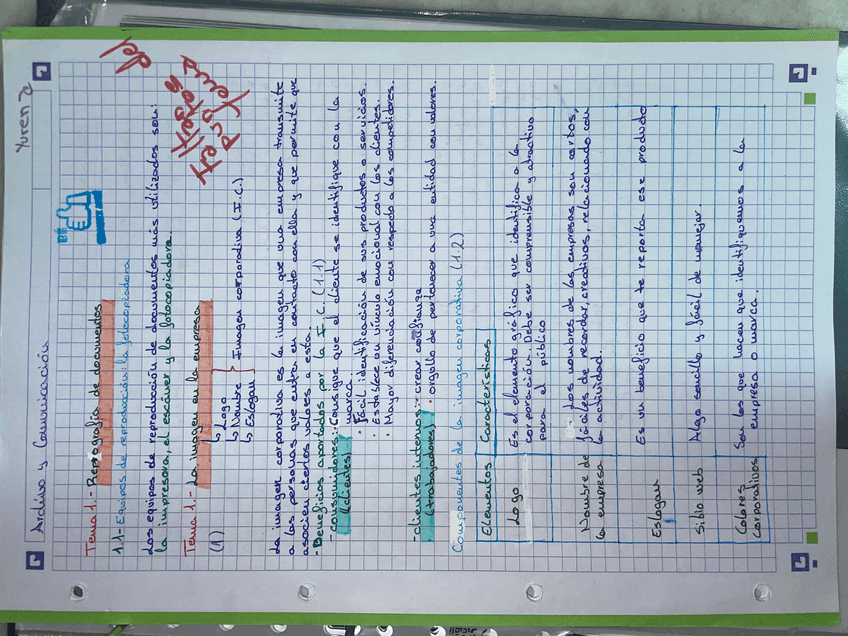 Archivo y Comunicación
Yurena
Tema 1.- Reprografía de documentos
1.1- Equipos de reproducción: la fotocopiadora
Los equipos de reproducción de documentos más utilizados son:
la impresora, el escáner y la fotocopiadora.
Tema 1.- La imagen en la empresa
(1)
↳ Logo
↳ Nombre
↳ Eslogan
} Imagen corporativa (I.C.)
La imagen corporativa es la imagen que una empresa transmite
a las personas que entra en contacto con ella y que permite que
asocien ciertos valores a esta.
- Beneficios aportados por la I.C. (1.1)
- consumidores: · Consigue que el cliente se identifique con la
(clientes) marca
· Fácil identificación de sus productos o servicios.
· Establece un vínculo emocional con los clientes.
· Mayor diferenciación con respecto a los competidores.
- clientes internos: · crear confianza
(trabajadores) · orgullo de pertenecer a una entidad con valores.
Componentes de la imagen corporativa (1.2)
Elementos Características
Logo
Es el elemento gráfico que identifica a la
corporación. Debe ser comprensible y atractivo
para el público
Nombre de
la empresa
Los nombres de las empresas son cortos,
fáciles de recordar, creativos, relacionado con
la actividad.
Eslogan
Es un beneficio que te reporta ese producto
Sitio web
Algo sencillo y fácil de manejar.
Colores
Corporativos
Son los que hacen que identifiquemos a la
empresa o marca.